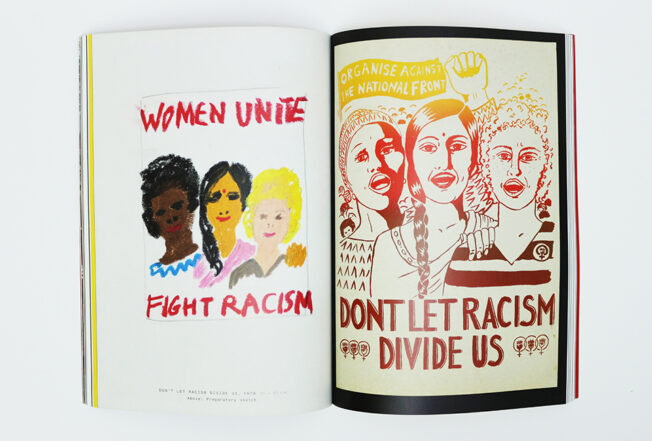 WOMEN UNITE
FIGHT RACISM
DON'T LET RACISM DIVIDE US, 1978
Above: Preparatory sketch
ORGANISE AGAINST
THE NATIONAL FRONT
DONT LET RACISM
DIVIDE US